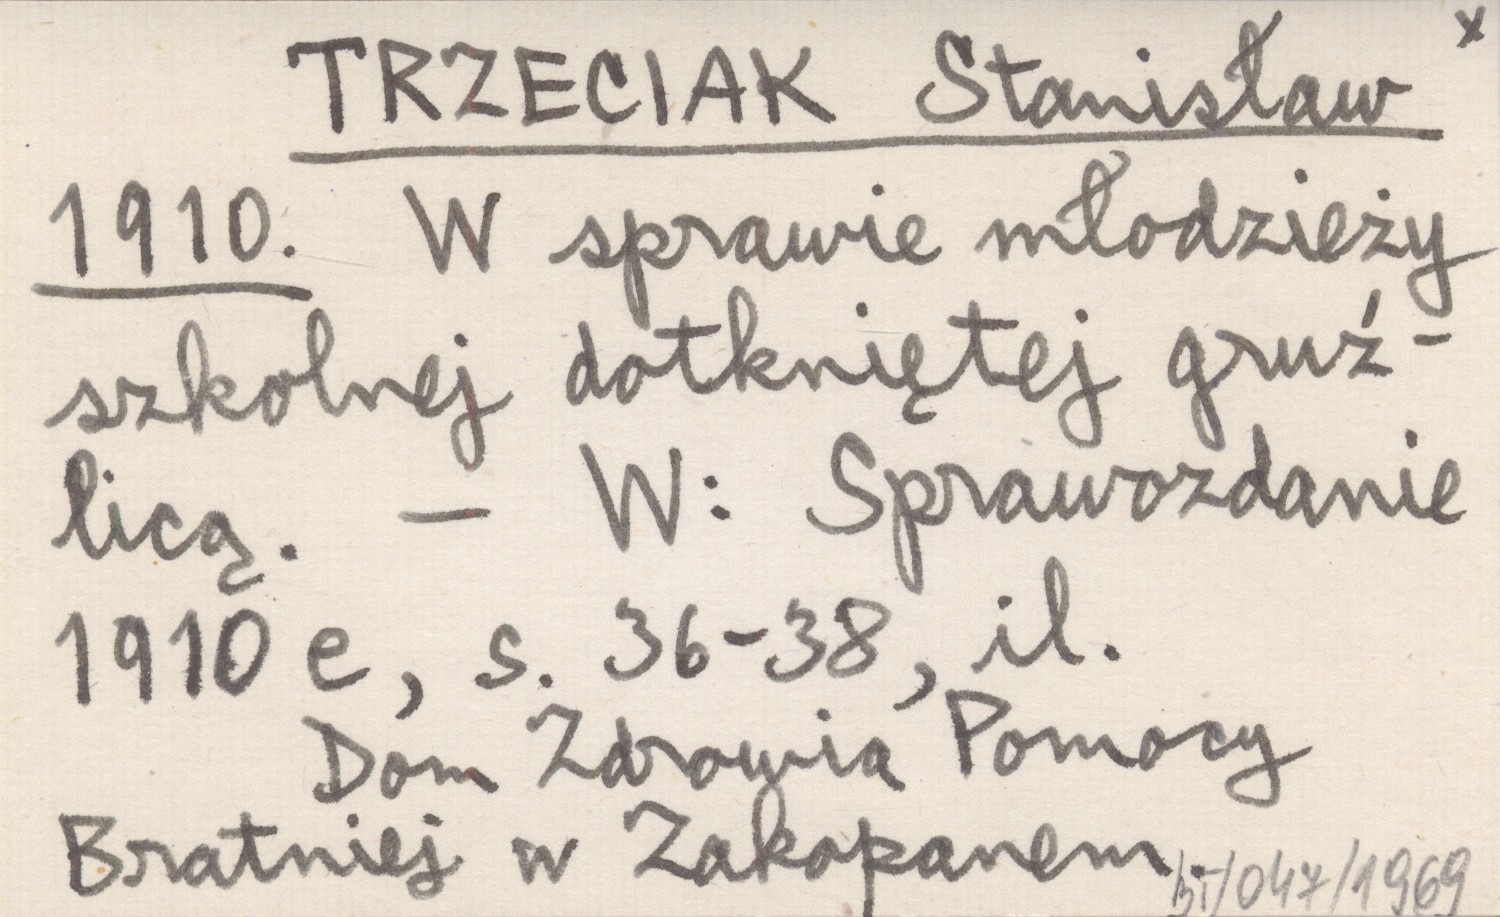 x
TRZECIAK Stanisław
1910. W sprawie młodzieży
szkolnej dotkniętej gruź-
licą. — W: Sprawozdanie
1910 e, s. 36-38, il.
Dom Zdrowia Pomocy
Bratniej w Zakopanem.
/047/1969